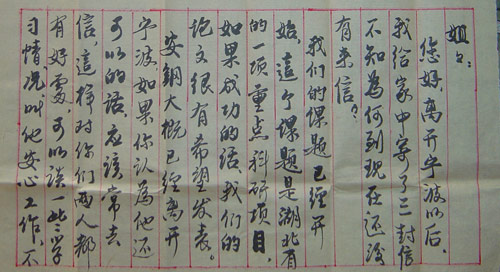 姐姐：
您好，离开宁波以后，
我给家中寄了三封信
不知为何到现在还没
有来信？
我们的课题已经开
始，这个课题是湖北省
的一项重点科研项目，
如果成功的话，我们的
论文很有希望发表。
安钢大概已经离开
宁波，如果你认为他还
可以的话，应该常去
信，这样对你们两人都
有好处，可以谈一些学
习情况叫他安心工作，不